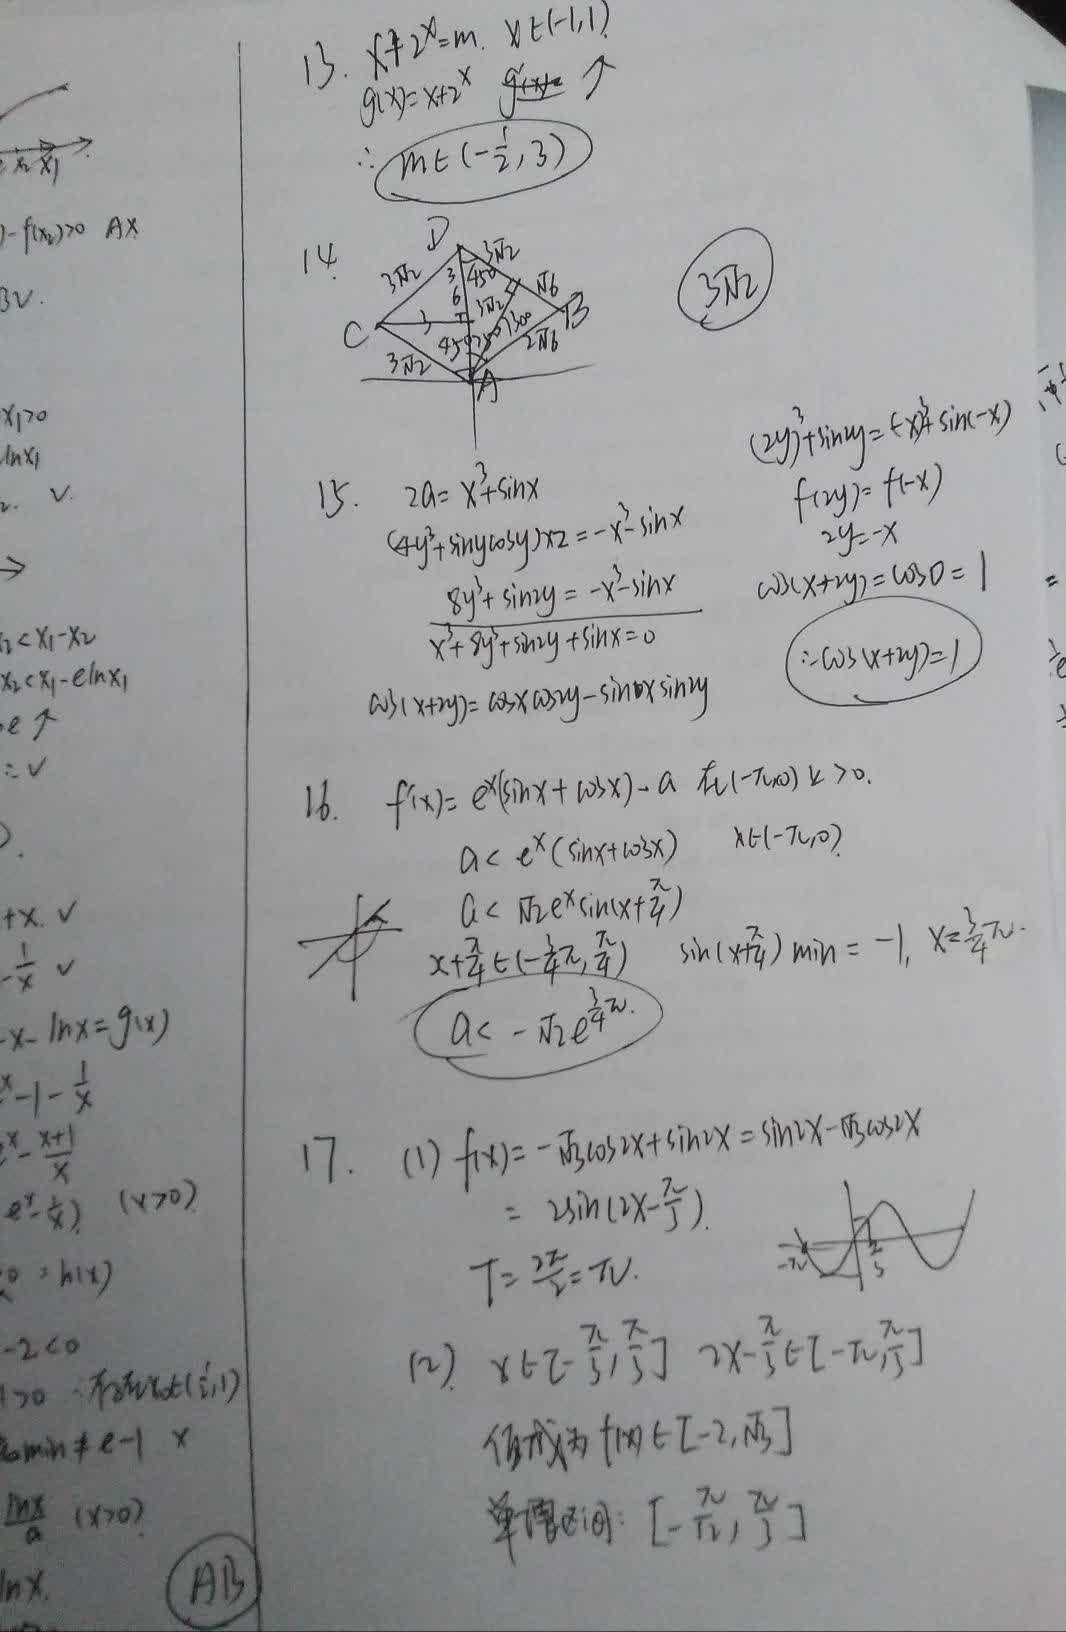 x₂ x₁
)-f(x₂)>0 A×
B√.
x₁>0
lnx₁
√.
→
x₂<x₁-x₂
x₂<x₁-elnx₁
e↑
∴√
+x. √
-1/x √
-x-lnx=g(x)
-1-1/x
-(x+1)/x
eˣ-1/x) (x>0)
=h(x)
-2<0
1>0 ∴不存在x₀∈(½,1)
min≠e-1 ×
lnx/a (x>0)
lnx.
AB
13. x+2ˣ=m. x∈(-1,1).
g(x)=x+2ˣ ↑
∴ m∈(-1/2,3)
14.
D
3√2 3 45° 3√2
6 3√2 √6
C 3 B
3√2 45° 30° 2√6
A
3√2
15. 2a=x³+sinx
(4y³+sinycosy)×2=-x³-sinx
8y³+sin2y=-x³-sinx
x³+8y³+sin2y+sinx=0
cos(x+2y)=cosxcos2y-sinxsin2y
(2y)³+sin2y=(-x)³+sin(-x)
f(2y)=f(-x)
2y=-x
cos(x+2y)=cos0=1
∴cos(x+2y)=1
16. f'(x)=eˣ(sinx+cosx)-a 在(-π,0)上>0.
a<eˣ(sinx+cosx) x∈(-π,0).
a<√2eˣsin(x+π/4)
x+π/4∈(-3/4π,π/4) sin(x+π/4)min=-1, x=3/4π.
a<-√2e^(3/4π).
17. (1) f(x)=-√3cos2x+sin2x=sin2x-√3cos2x
=2sin(2x-π/3).
T=2π/2=π.
-π π/3
(2). x∈[-π/3,π/3] 2x-π/3∈[-π,π/3]
值域为 f(x)∈[-2,√3]
单增区间: [-π/12,π/3]